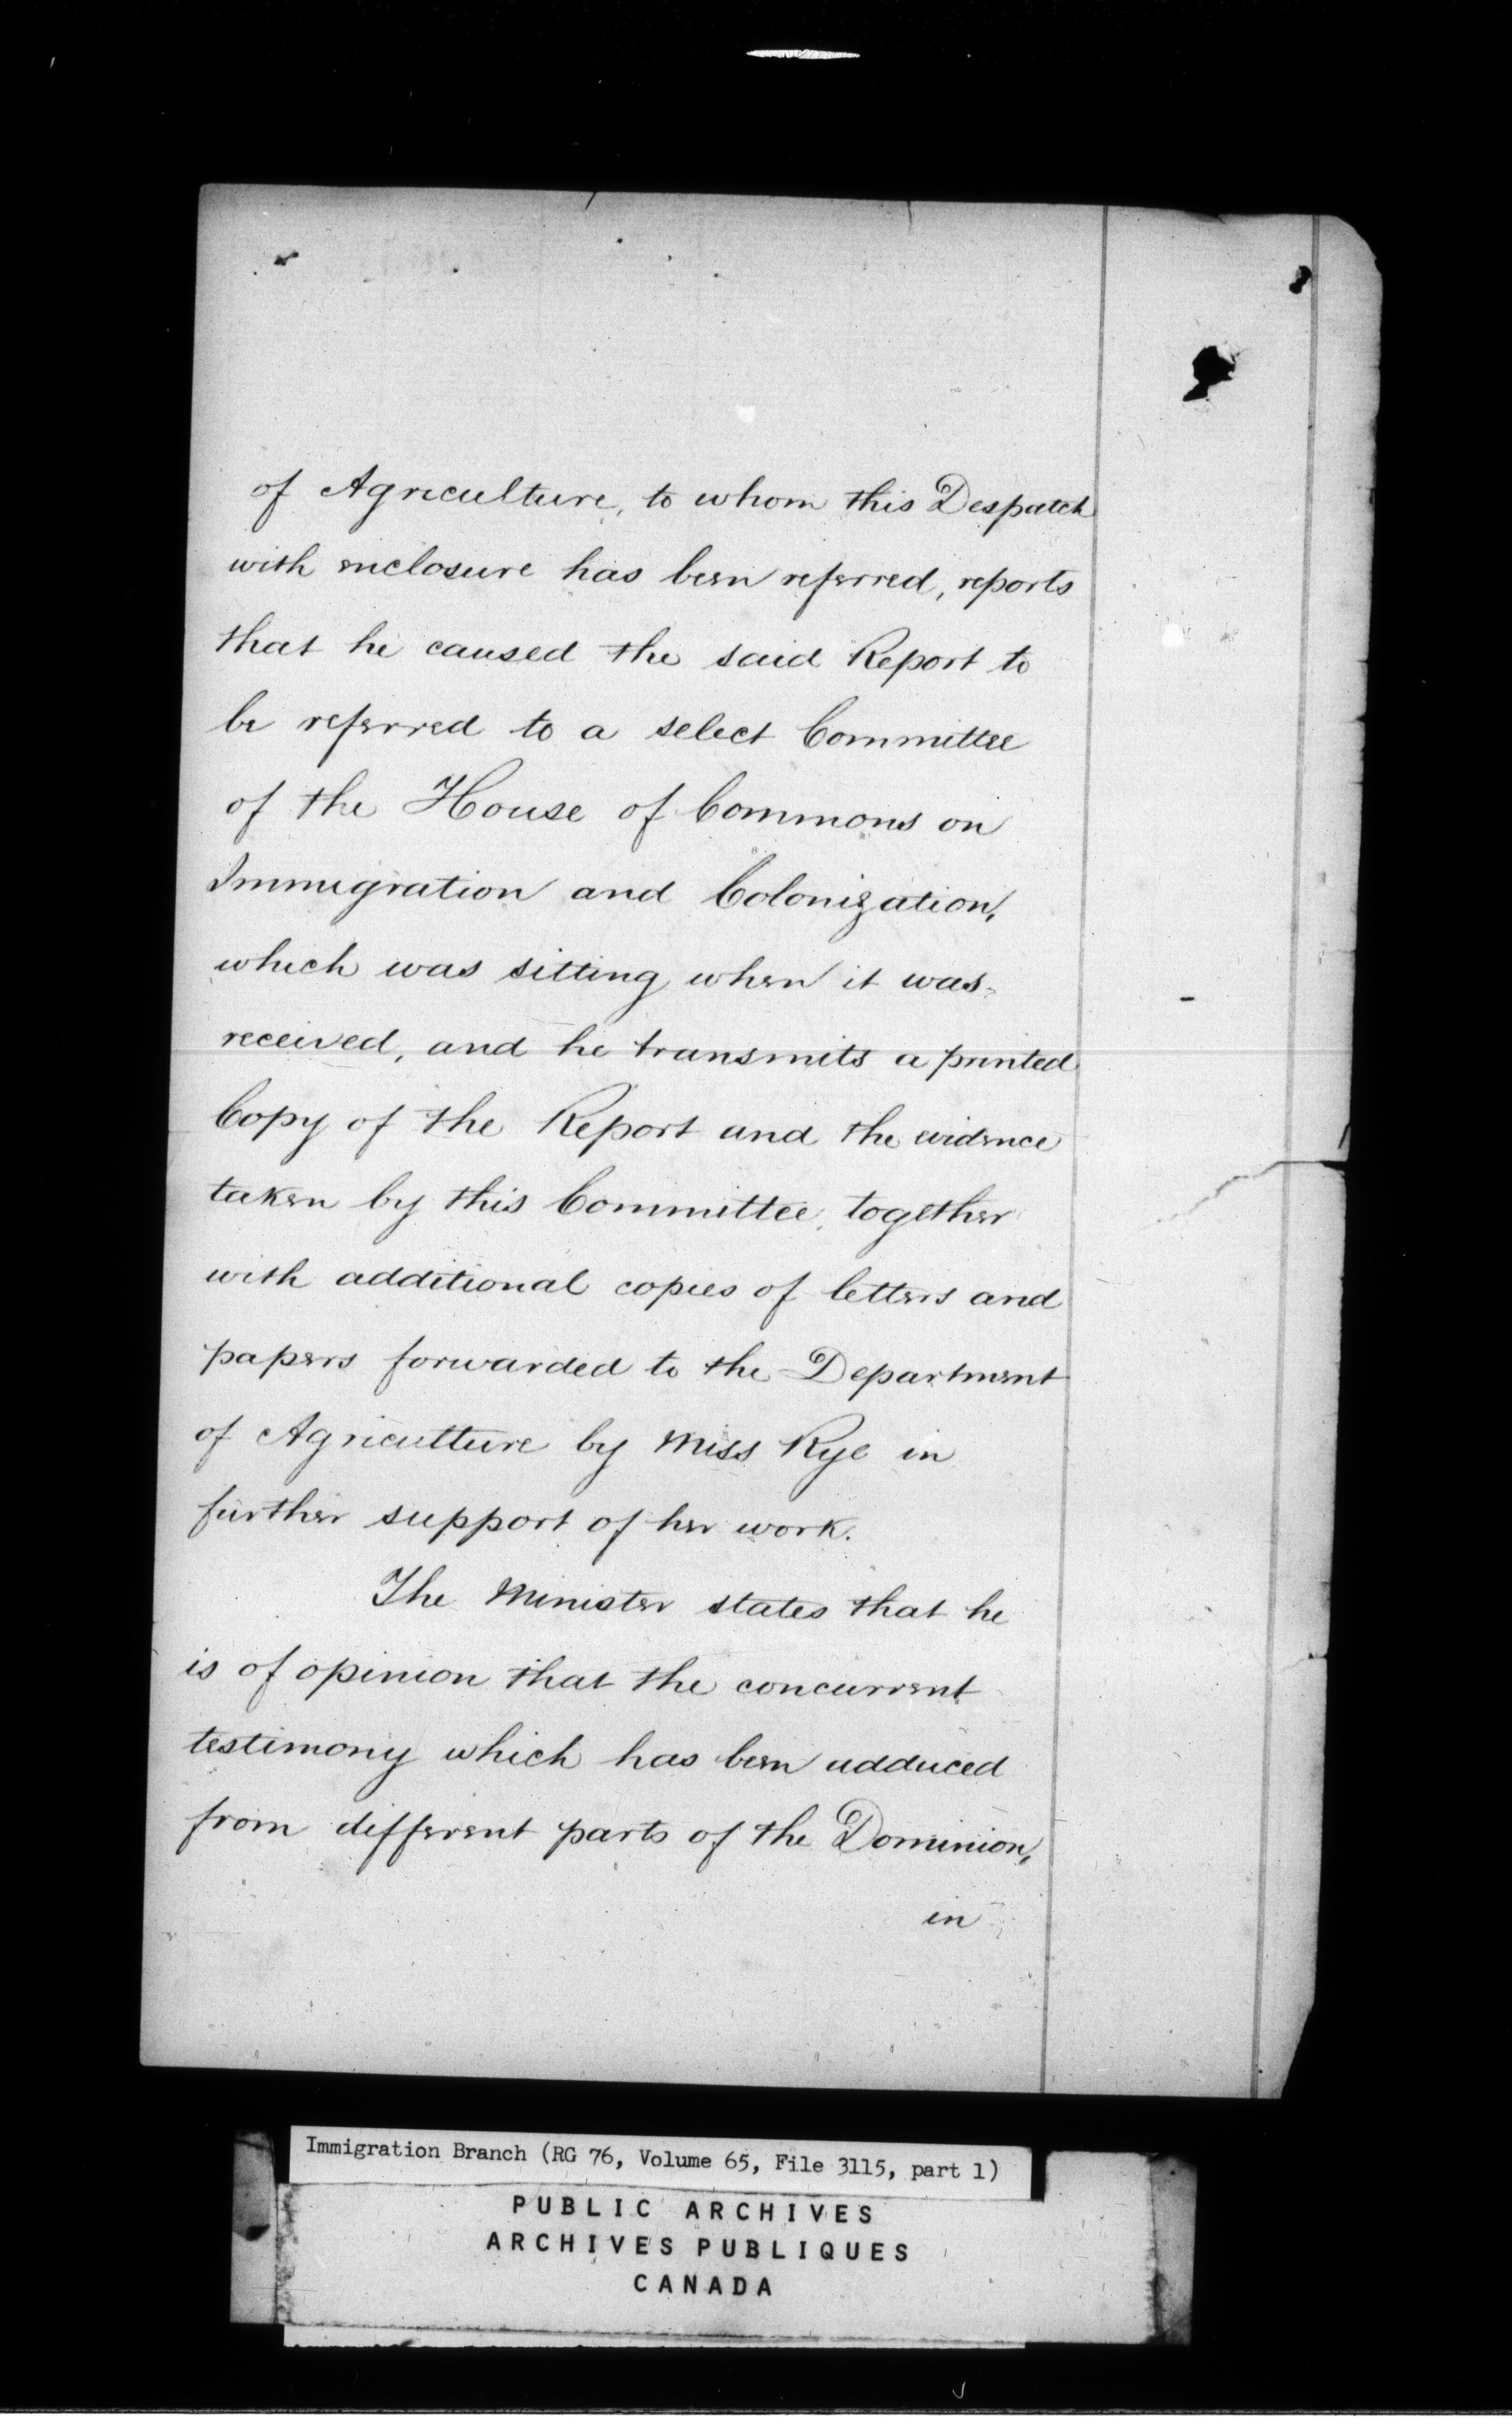 of Agriculture, to whom this Despatch
with enclosure has been referred, reports
that he caused the said Report to
be referred to a select Committee
of the House of Commons on
Immigration and Colonization,
which was sitting when it was
received, and he transmits a printed
Copy of the Report and the evidence
taken by this Committee, together
with additional copies of letters and
papers forwarded to the Department
of Agriculture by Miss Rye in
further support of her work.
The Minister states that he
is of opinion that the concurrent
testimony which has been adduced
from different parts of the Dominion,
in
Immigration Branch (RG 76, Volume 65, File 3115, part 1)
PUBLIC ARCHIVES
ARCHIVES PUBLIQUES
CANADA